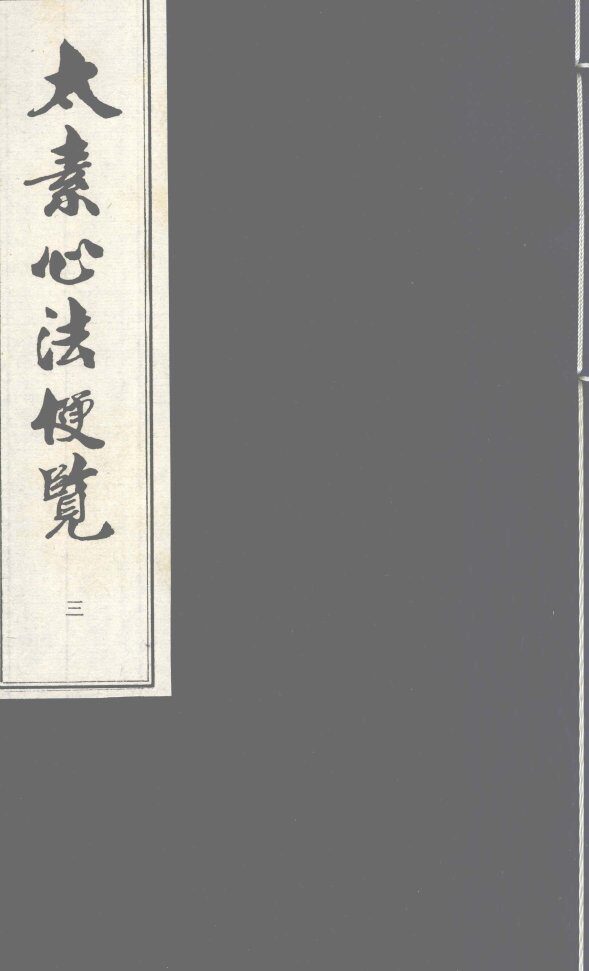 太素心法便覽
三